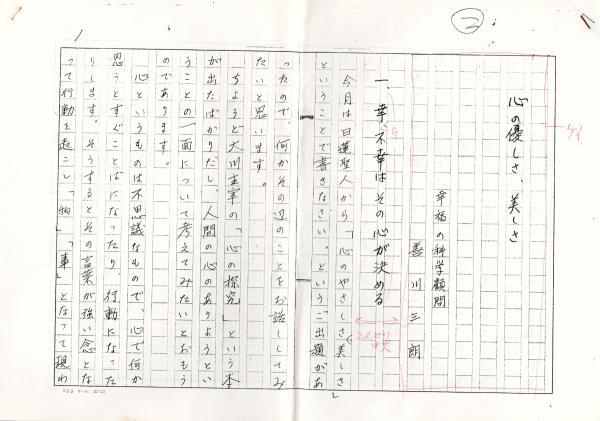 ②
心の優しさ、美しさ
ケイ
幸福の科学顧問
善川三朗
一、幸、不幸はその心が決める
今月は日蓮聖人から「心のやさしさ、美しさ」
ということで書きなさい。というご出題があ
ったので、何かその辺のことをお話ししてみ
たいと思います。
ちょうど大川主宰の「心の探究」という本
が出たばかりだし、人間の心のありようとい
うことの一面について考えてみたいとおもう
のであります。
心というものは不思議なもので、心で何か
思うとすぐことばになったり、行動になった
りします。そうするとその言葉が強い念とな
って行動を起こし「物」「事」となって現わ